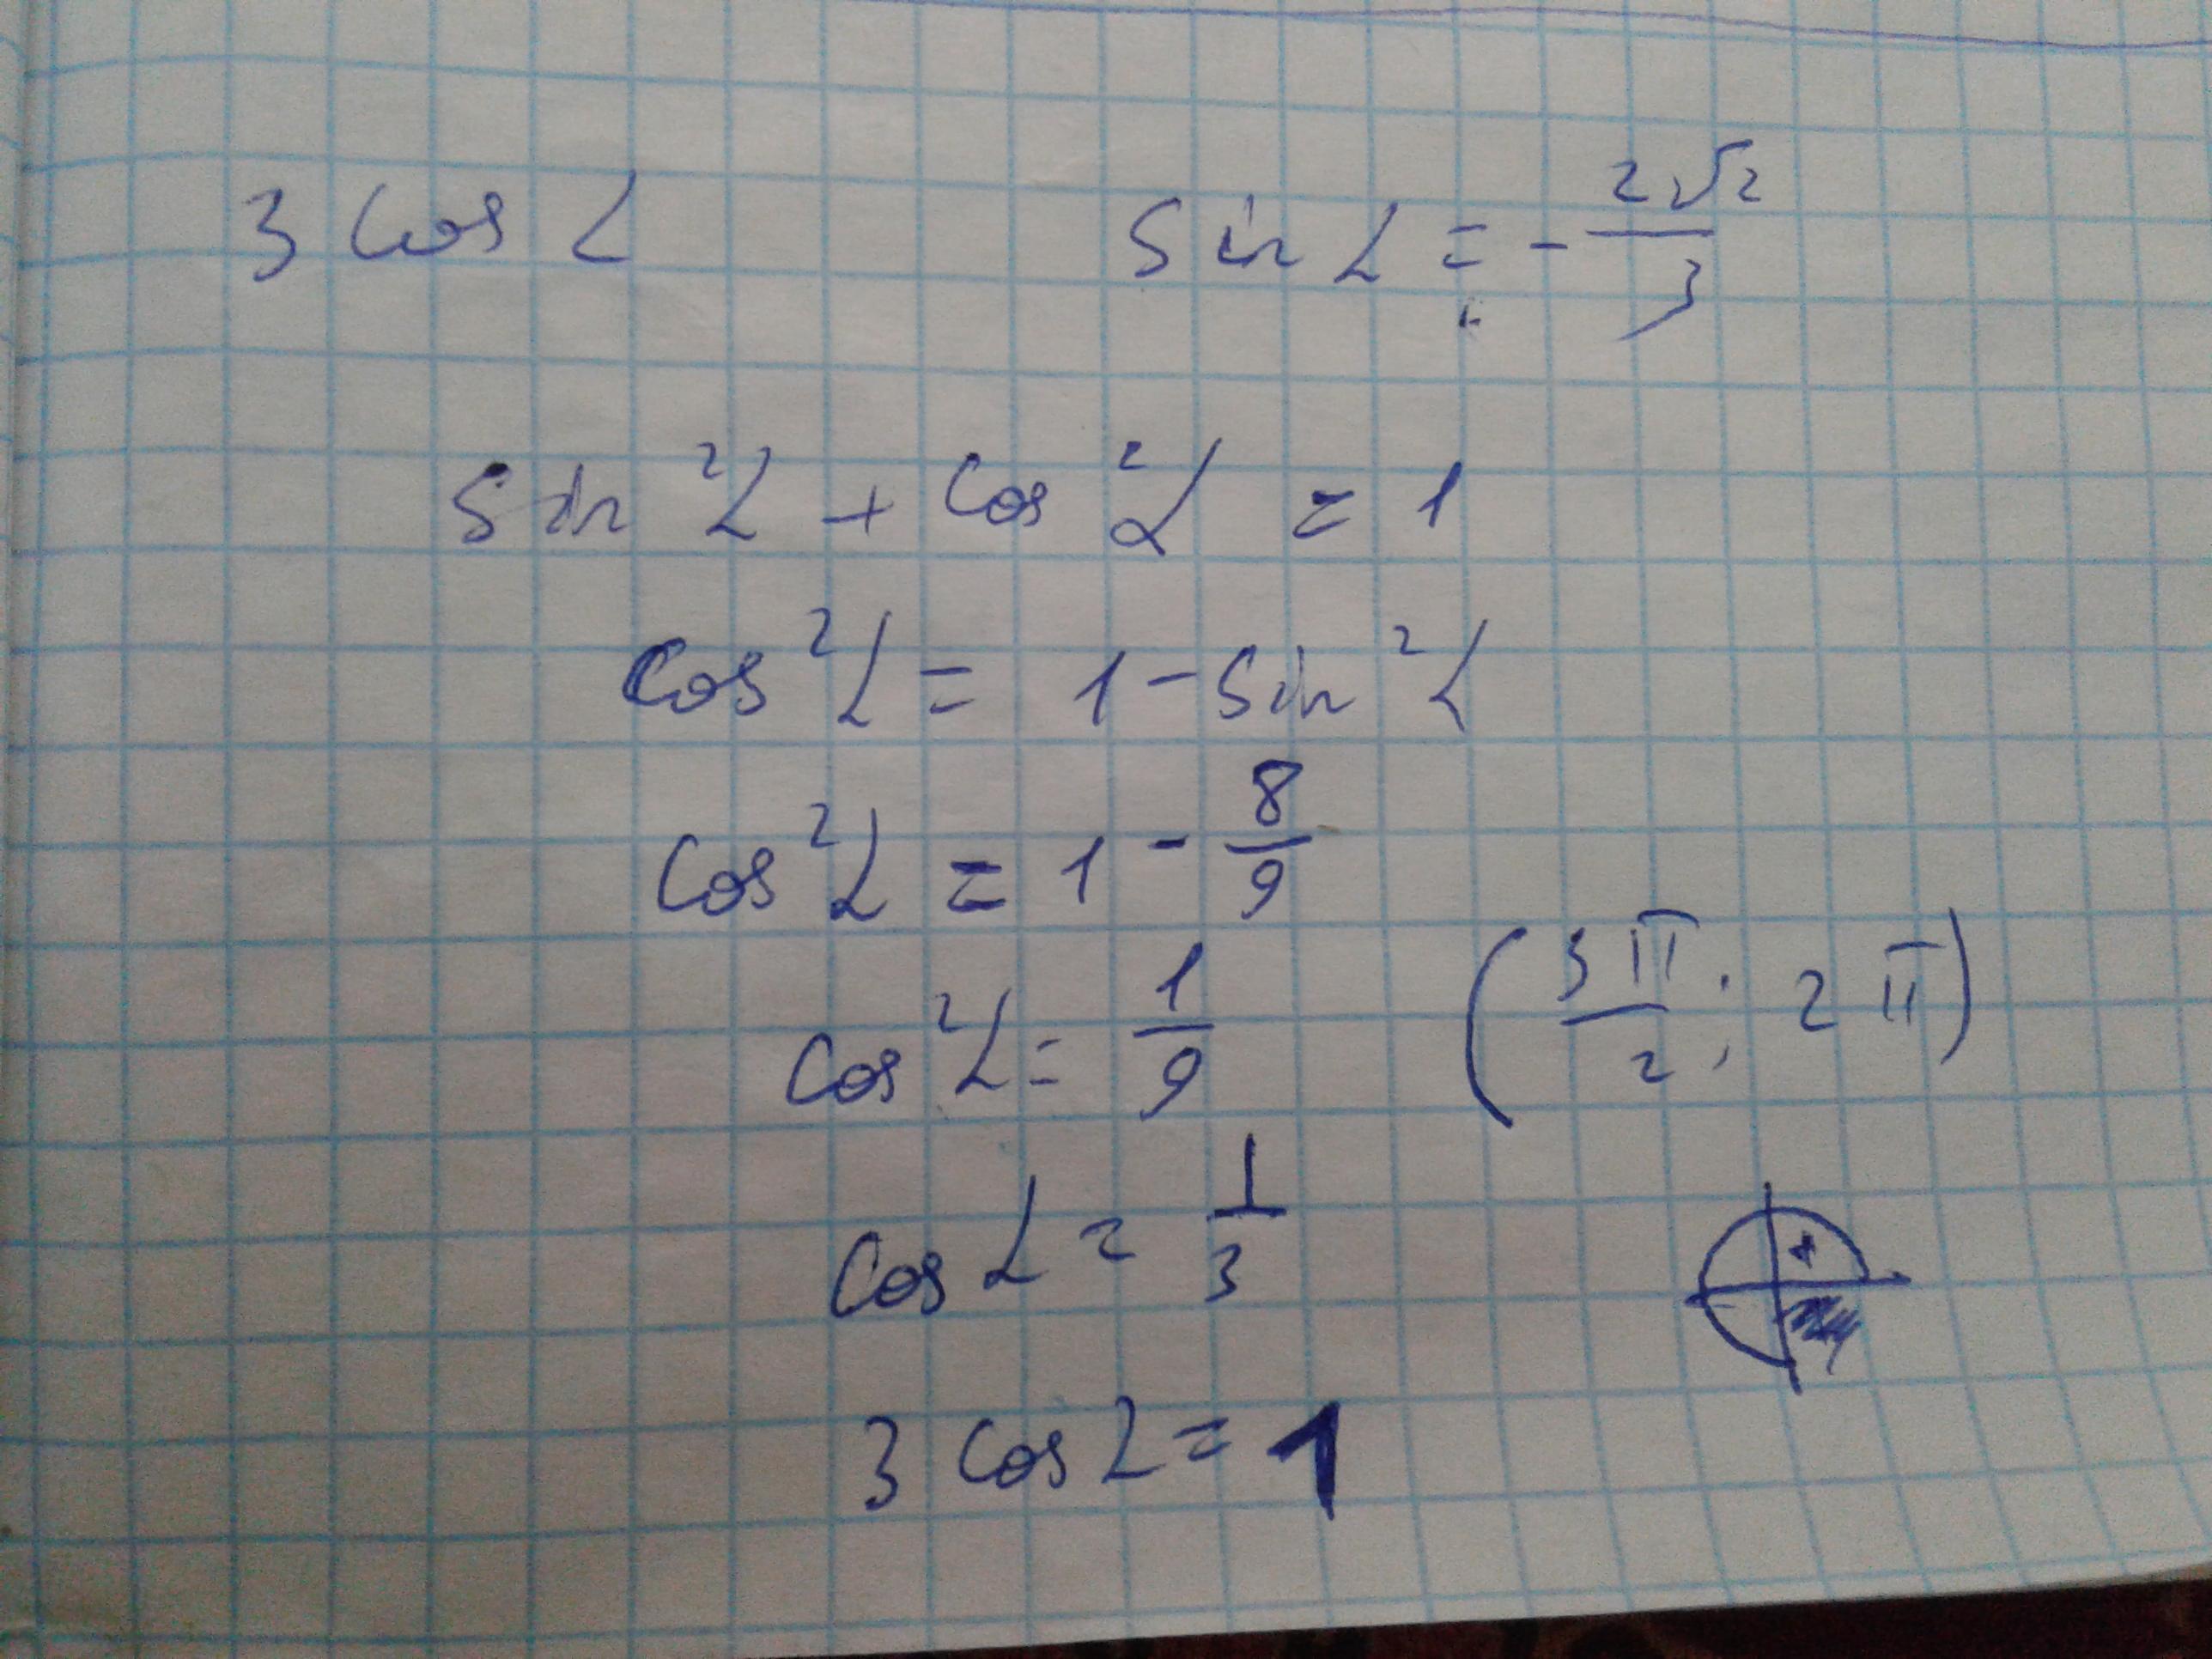 3 cos α    sin α = - 2√2/3
sin²α + cos²α = 1
cos²α = 1 - sin²α
cos²α = 1 - 8/9
cos²α = 1/9    (3π/2; 2π)
cos α = 1/3
+
3 cos α = 1